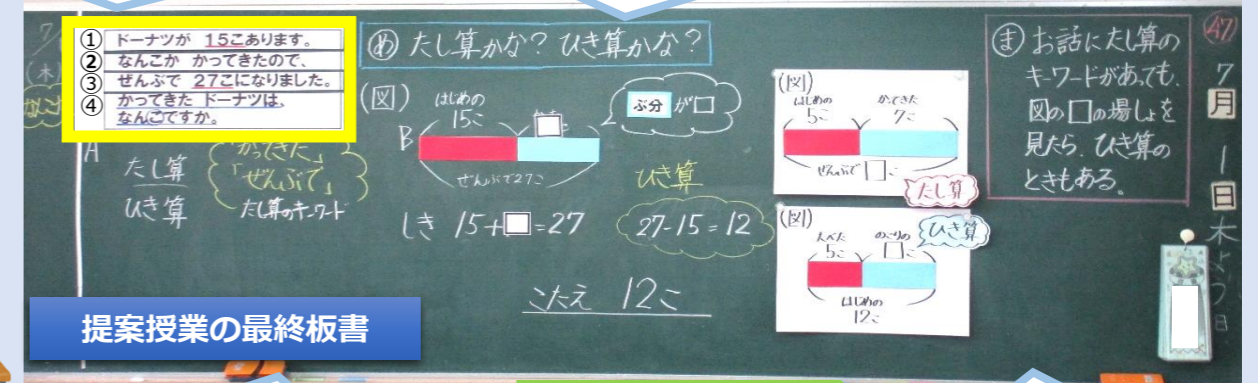 ① ドーナツが 15こあります。
② なんこか かってきたので、
③ ぜんぶで 27こになりました。
④ かってきた ドーナツは、
なんこですか。
A
たし算
ひき算
「かってきた」
「ぜんぶで」
たし算のキーワード
め たし算かな?ひき算かな?
(図)
B
はじめの
15こ
ぜんぶで27こ
ぶ分 が□
しき 15+□=27
ひき算
27-15=12
こたえ 12こ
(図)
はじめの
5こ
かってきた
7こ
ぜんぶで□こ
たし算
(図)
たべた
5こ
のこりの
□こ
ひき算
はじめの
12こ
ま お話にたし算の
キーワードがあっても、
図の□の場しょを
見たら、ひき算の
ときもある。
47
7
月
1
日
木
よ
う
日
提案授業の最終板書